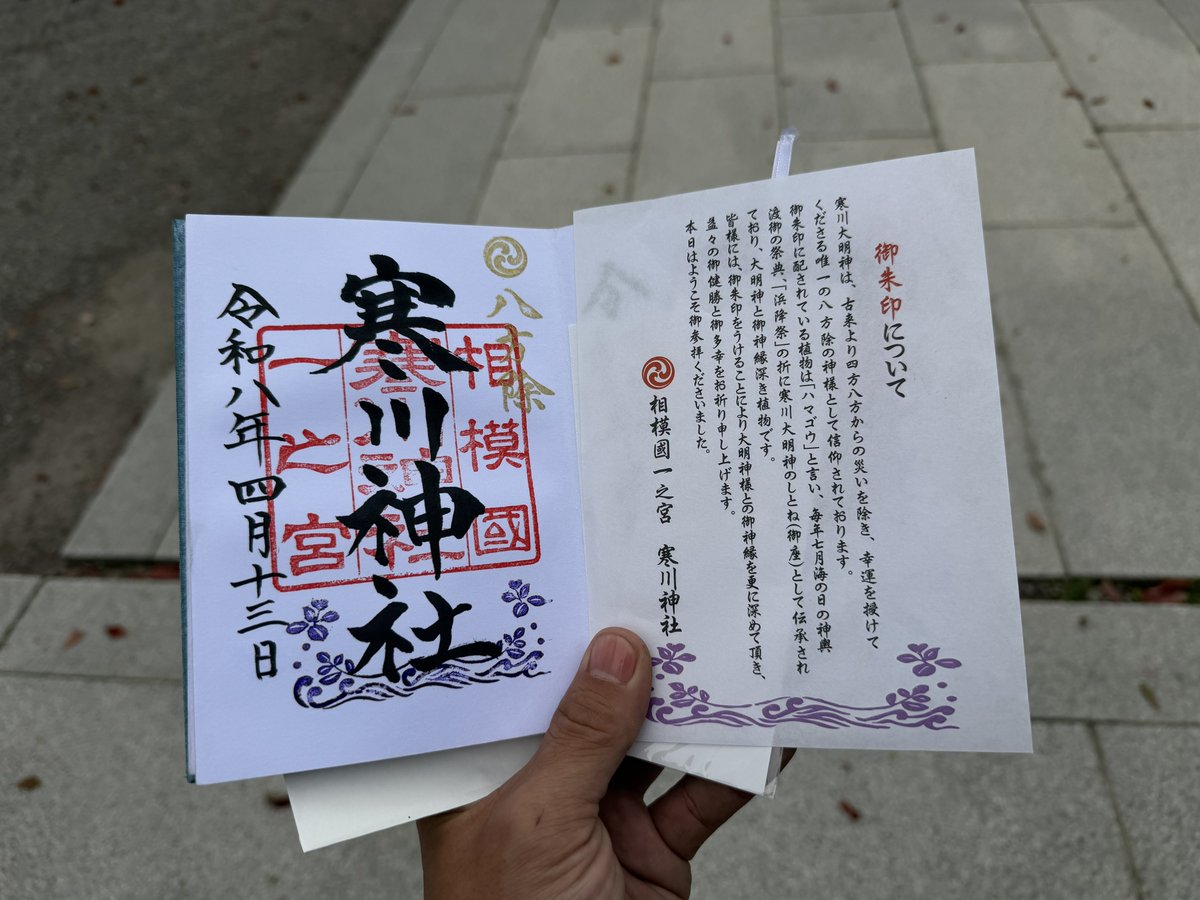 八方除
寒川神社
相模國
寒川神社
一之宮
令和八年四月十三日
御朱印について
寒川大明神は、古来より四方八方からの災いを除き、幸運を授けて
くださる唯一の八方除の神様として信仰されております。
御朱印に配されている植物は「ハマゴウ」と言い、毎年七月海の日の神輿
渡御の祭典、「浜降祭」の折に寒川大明神のしとね(御座)として伝承され
ており、大明神と御神縁深き植物です。
皆様には、御朱印をうけることにより大明神様との御神縁を更に深めて頂き、
益々の御健勝と御多幸をお祈り申し上げます。
本日はようこそ御参拝くださいました。
相模國一之宮 寒川神社